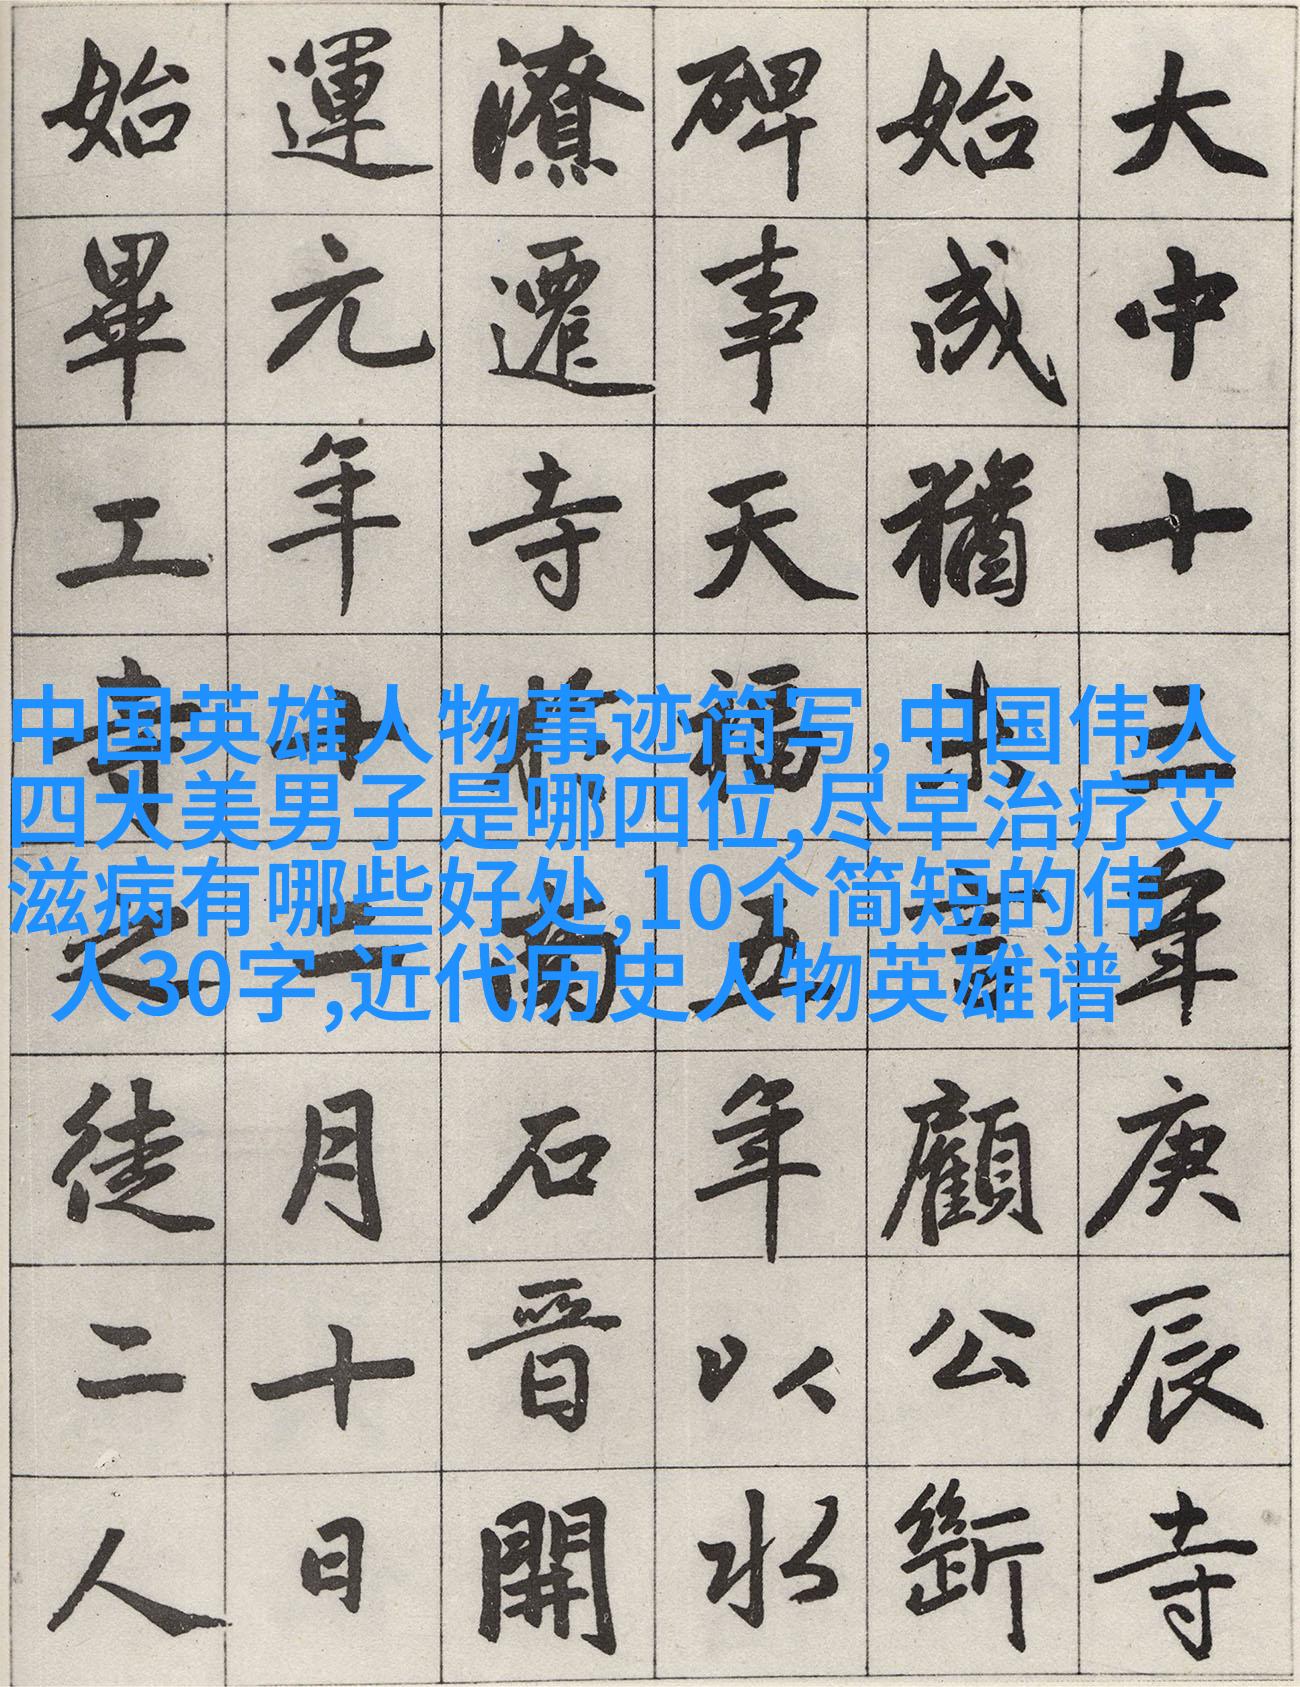 大中十三年庚辰寺
始成猶顧公斲
碑事天福五年以水
潦遷寺南石晉開
運元年十二月十日
始畢工寺之徒二人
中国英雄人物事迹简写,中国伟人
四大美男子是哪四位,尽早治疗艾
滋病有哪些好处,10个简短的伟
人30字,近代历史人物英雄谱